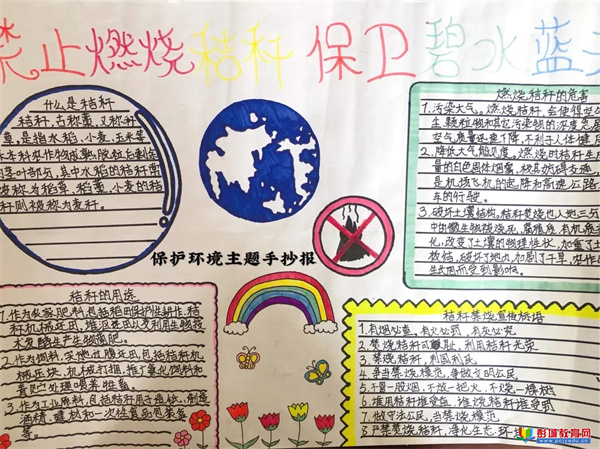 禁止燃烧秸秆 保卫碧水蓝天
什么是秸秆
秸秆,古称藁,又称禾
草,是指水稻、小麦、玉米等
禾本科农作物成熟脱粒后剩余
的茎叶部分,其中水稻的秸秆常
被称为稻草、稻藁,小麦的秸
秆则被称为麦秆。
燃烧秸秆的危害
1.污染大气。燃烧秸秆,会使得空
生颗粒物和其它污染物的浓度急
空气质量迅速下降,不利于人体健
2.降低大气能见度。燃烧时秸秆生
量的白色固体烟雾,极易妨碍交通,
是机场飞机的起降和高速公路
车的行驶。
3.破坏土壤结构,秸秆焚烧也入地三分
中的微生物被烧死,腐殖质、有机质
化,改变了土壤的物理性状,加重了土
板结,破坏了地力,加剧了干旱,农作
生长因而受到影响。
保护环境主题手抄报
秸秆的用途
1.作为农家肥料,包括稻田保护性耕作,秸
秆机械还田,堆沤还田以及利用生物技
术发酵生产生物菌肥。
2.作为饲料,
械压块,机械打捆,推广氨化饲料和
青贮处理喂养牲畜。
3.作为工业原料,包括秸秆用于造纸、制造
酒精、建材和一次性食品包装盒
等。
秸秆禁烧宣传标语
1.有烟必查,有火必罚,有灰必究
2.焚烧秸秆可耻,利用秸秆光荣
3.禁烧秸秆,利国利民
4.争当禁烧模范,争做文明公民
5.不冒一股烟,不放一把火,不烧一棵树
6.谁用秸秆谁受益,谁烧秸秆谁受罚
7.做守法公民,当禁烧模范
8.严禁焚烧秸秆,净化生态环境
彭雅教育网